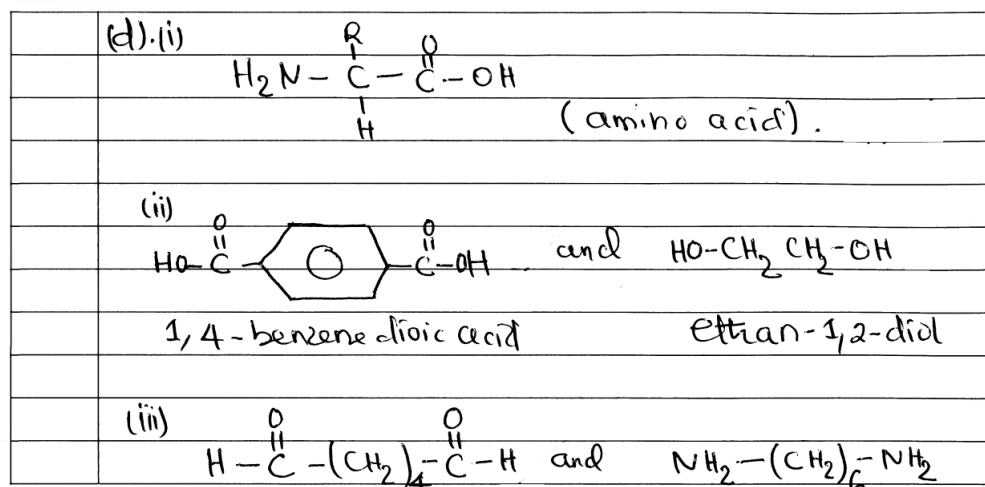 (d).(i)
R O
H₂N - C - C - OH
H
(amino acid).
(ii)
O O
HO - C - C - OH and HO-CH₂ CH₂-OH
1,4-benzene dioic acid ethan-1,2-diol
(iii)
O O
H - C - (CH₂)₄ - C - H and NH₂ - (CH₂)₆ - NH₂